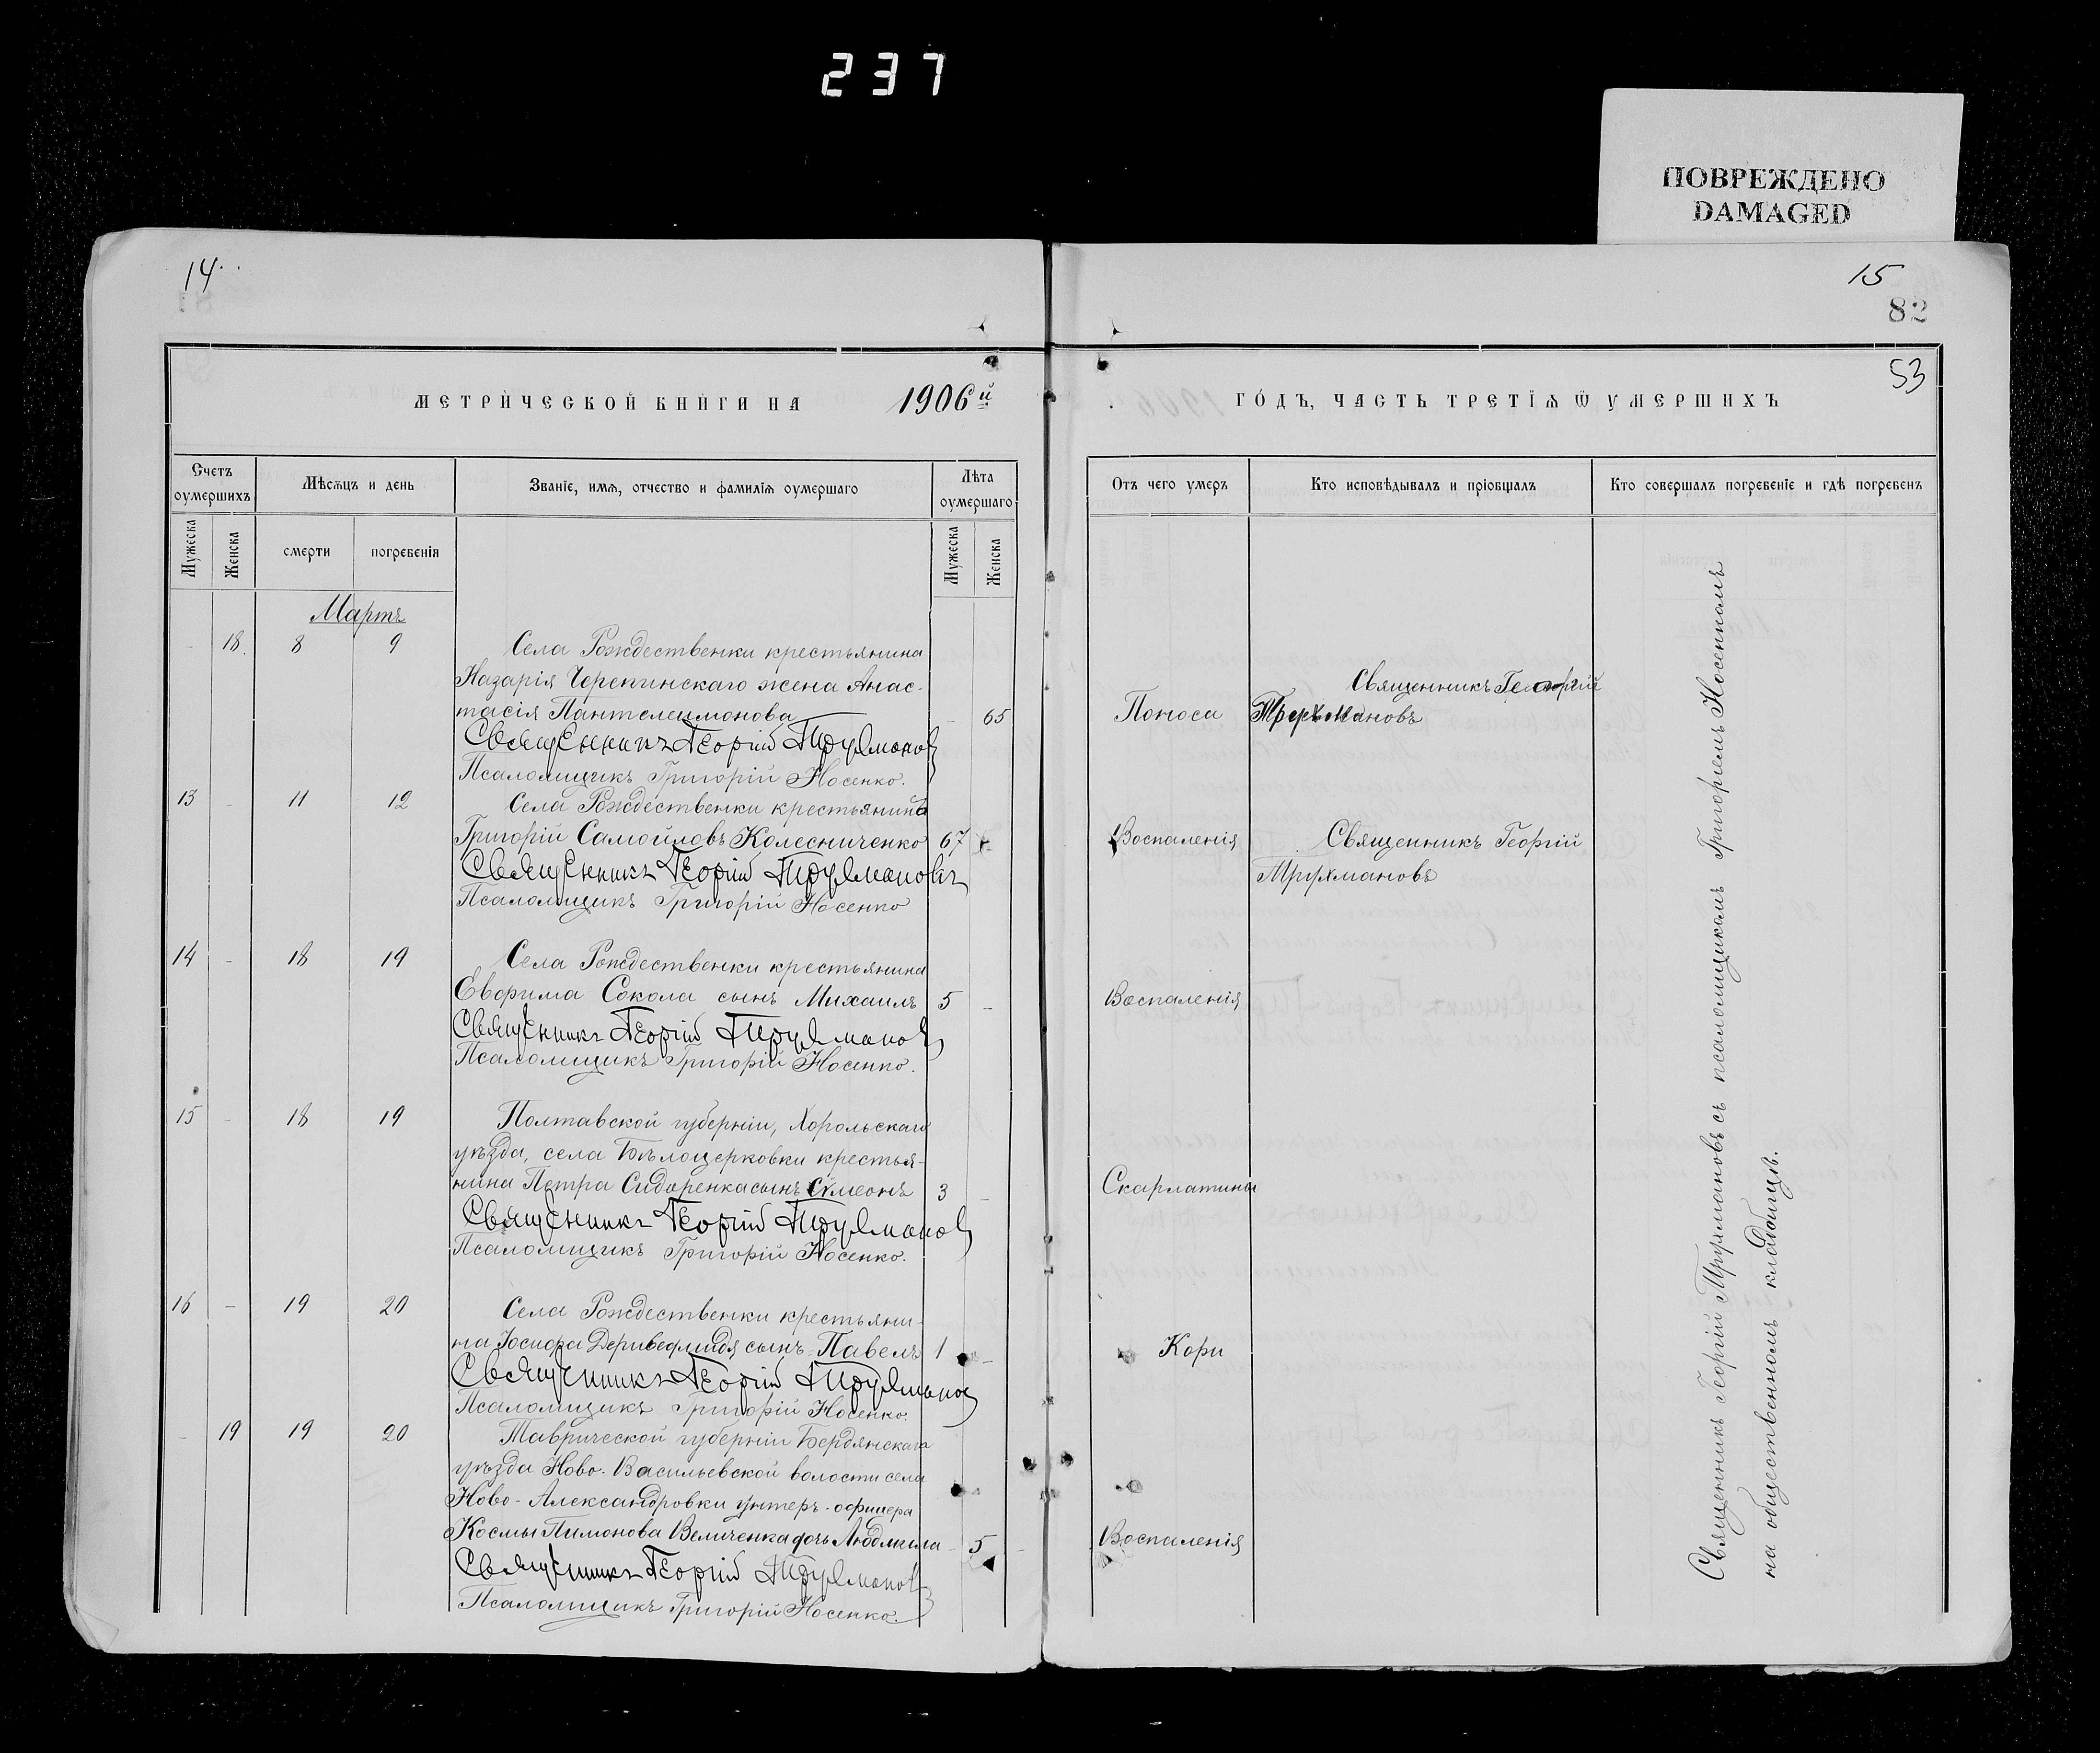 237
ПОВРЕЖДЕНО
DAMAGED
14
15
82
53
МЕТРИЧЕСКОЙ КНИГИ НА 1906й
ГОДЪ, ЧАСТЬ ТРЕТІѦ Ѿ УМЕРШИХЪ
Счетъ оумершихъ
Мѣсѧцъ и день
Званіе, имѧ, отчество и фамиліѧ оумершаго
Лѣта оумершаго
Отъ чего умеръ
Кто исповѣдывалъ и пріобщалъ
Кто совершалъ погребеніе и гдѣ погребенъ
Мужеска
Женска
смерти
погребенія
Мужеска
Женска
Мартъ
- 18. 8 9 Села Рождественки крестьянина
Назарія Черепинскаго жена Анас-
тасія Пантелеимонова - 65
Священникъ Георгій Трухмановъ
Псаломщикъ Григорій Носенко.
Поноса
Священникъ Георгій
Трухмановъ
13 - 11 12 Села Рождественки крестьянинъ
Григорій Самойловъ Колесниченко 67 -
Священникъ Георгій Трухмановъ
Псаломщикъ Григорій Носенко
Воспаленія
Священникъ Георгій
Трухмановъ
14 - 18 19 Села Рождественки крестьянина
Евфима Сокола сынъ Михаилъ 5 -
Священникъ Георгій Трухмановъ
Псаломщикъ Григорій Носенко.
Воспаленія
15 - 18 19 Полтавской губерніи, Хорольскаго
уѣзда, села Бѣлоцерковки крестья-
нина Петра Сидоренка сынъ Сѵмеонъ 3 -
Священникъ Георгій Трухмановъ
Псаломщикъ Григорій Носенко.
Скарлатины
16 - 19 20 Села Рождественки крестьяни-
на Іосифа сынъ Павелъ 1 -
Священникъ Георгій Трухмановъ
Псаломщикъ Григорій Носенко.
Кори
- 19 19 20 Таврической губерніи Бердянскаго
уѣзда Ново-Васильевской волости села
Ново-Александровки унтеръ-офицера
Космы Пимонова Величенка дочь Людмила - 5
Священникъ Георгій Трухмановъ
Псаломщикъ Григорій Носенко.
Воспаленія
Священникъ Георгій Трухмановъ съ псаломщикомъ Григоріемъ Носенкомъ
на общественномъ кладбищѣ.